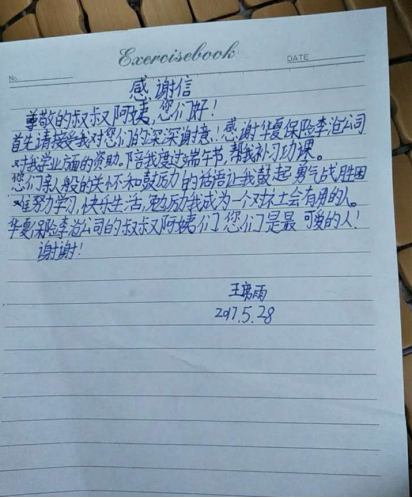 Exercisebook
No.
DATE
感谢信
尊敬的叔叔阿姨,您们好!
首先请接受我对您们的深深谢意!感谢华夏保险李沧公司
对我学业方面的资助。陪我度过端午节,帮我补习功课。
您们亲人般的关怀和鼓励的话语让我鼓起勇气战胜困
难努力学习,快乐生活,勉励我成为一个对社会有用的人。
华夏保险李沧公司的叔叔阿姨们,您们是最可爱的人!
谢谢!
王 雨
2017.5.28